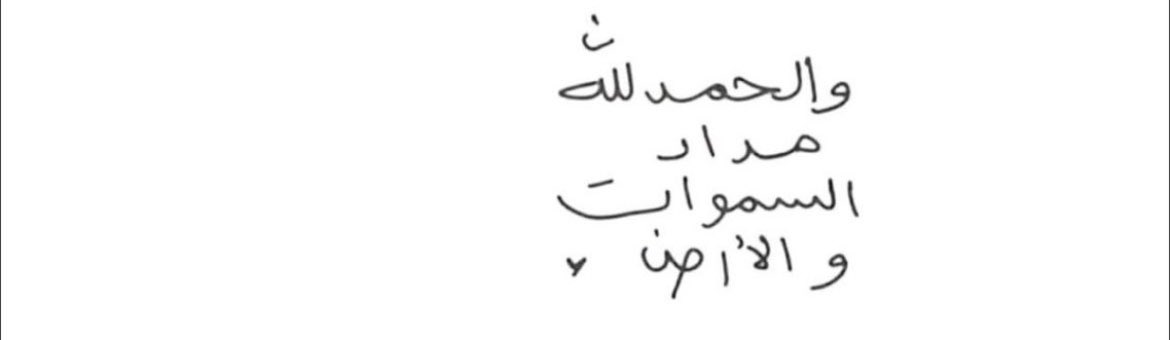 ن
والحمد لله
مداد
السموات
و الأرض